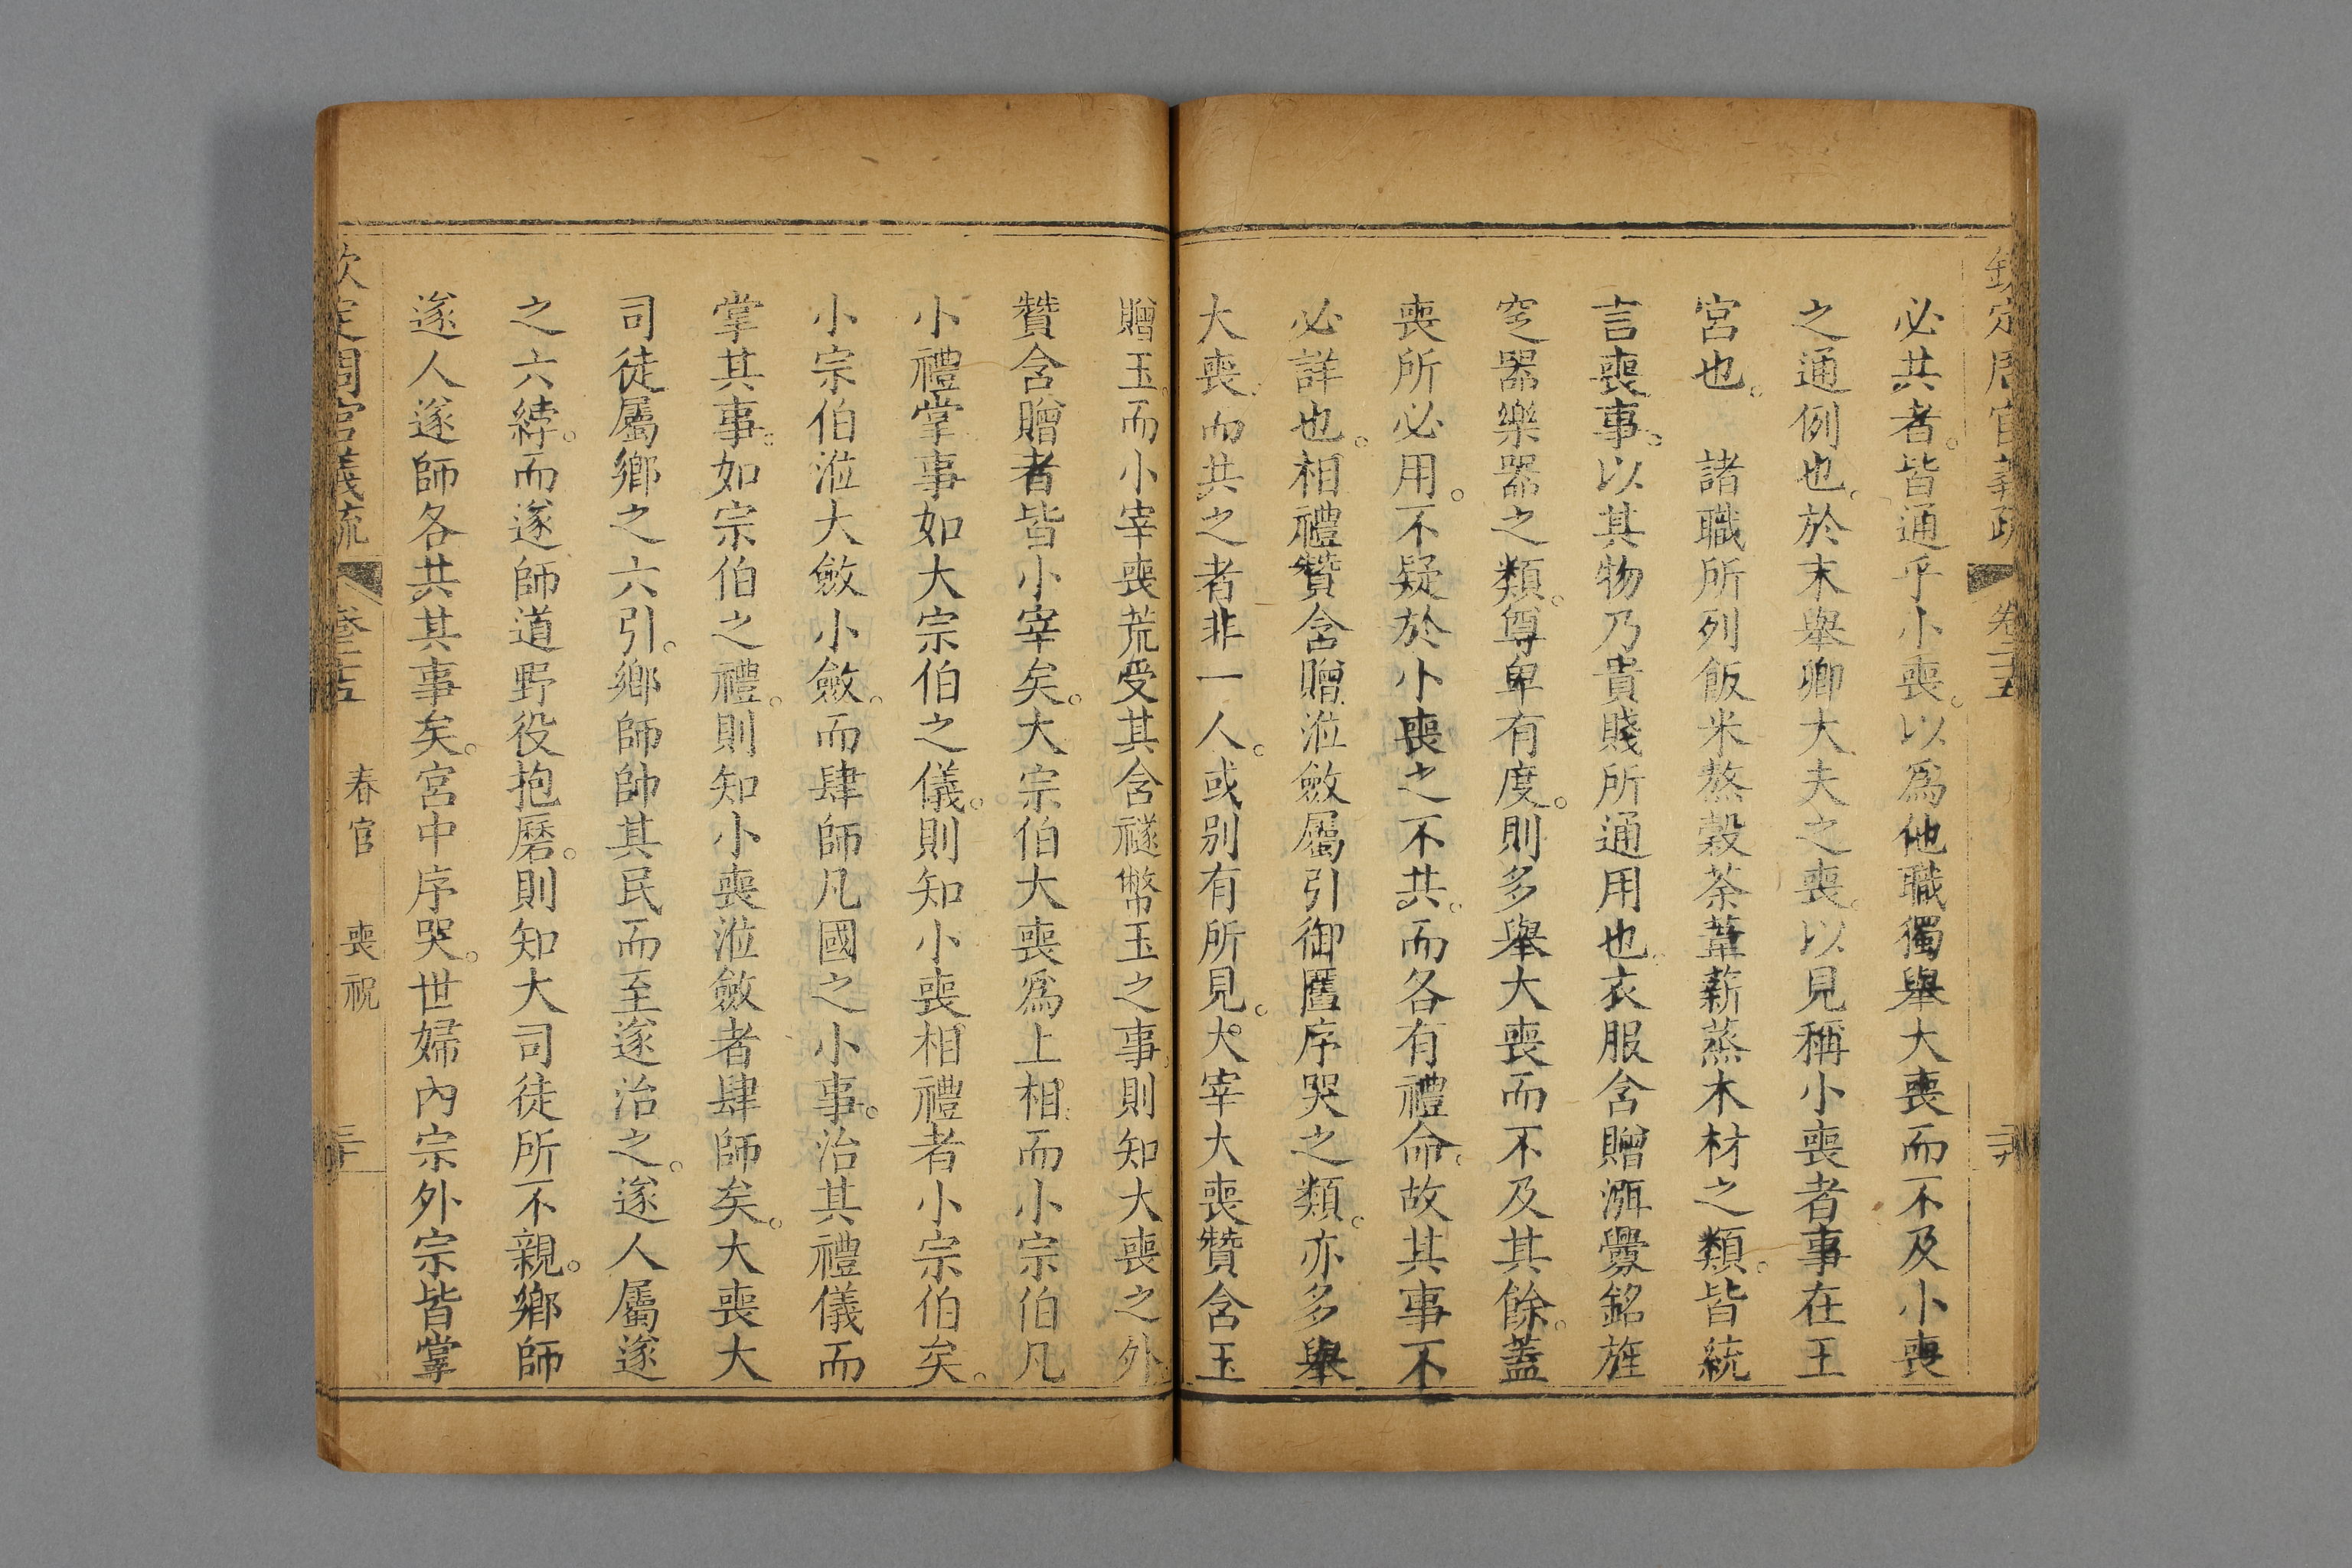 欽定周官義疏 卷二十五 三十
必共者。皆通乎小喪。以爲他職獨舉大喪而不及小喪
之通例也。於末舉卿大夫之喪。以見稱小喪者事在王
宮也。 諸職所列飯米熬穀荼蜃薪蒸木材之類。皆統
言喪事。以其物乃貴賤所通用也。衣服含贈湎釁銘旌
窆器樂器之類。尊卑有度。則多舉大喪而不及其餘。蓋
喪所必用。不疑於小喪之不共。而各有禮命。故其事不
必詳也。相禮贊含贈涖斂屬引御匶序哭之類。亦多舉
大喪。而共之者非一人。或别有所見。大宰大喪贊含玉
贈玉。而小宰喪荒受其含襚幣玉之事。則知大喪之外
贊含贈者皆小宰矣。大宗伯大喪爲上相。而小宗伯凡
小禮掌事如大宗伯之儀。則知小喪相禮者小宗伯矣。
小宗伯涖大斂小斂。而肆師凡國之小事。治其禮儀而
掌其事。如宗伯之禮。則知小喪涖斂者肆師矣。大喪大
司徒屬鄉之六引。鄉師帥其民而至遂治之。遂人屬遂
之六綍。而遂師道野役抱磿。則知大司徒所不親。鄉師
遂人遂師各共其事矣。宮中序哭。世婦內宗外宗皆掌
欽定周官義疏 卷二十五 春官 喪祝